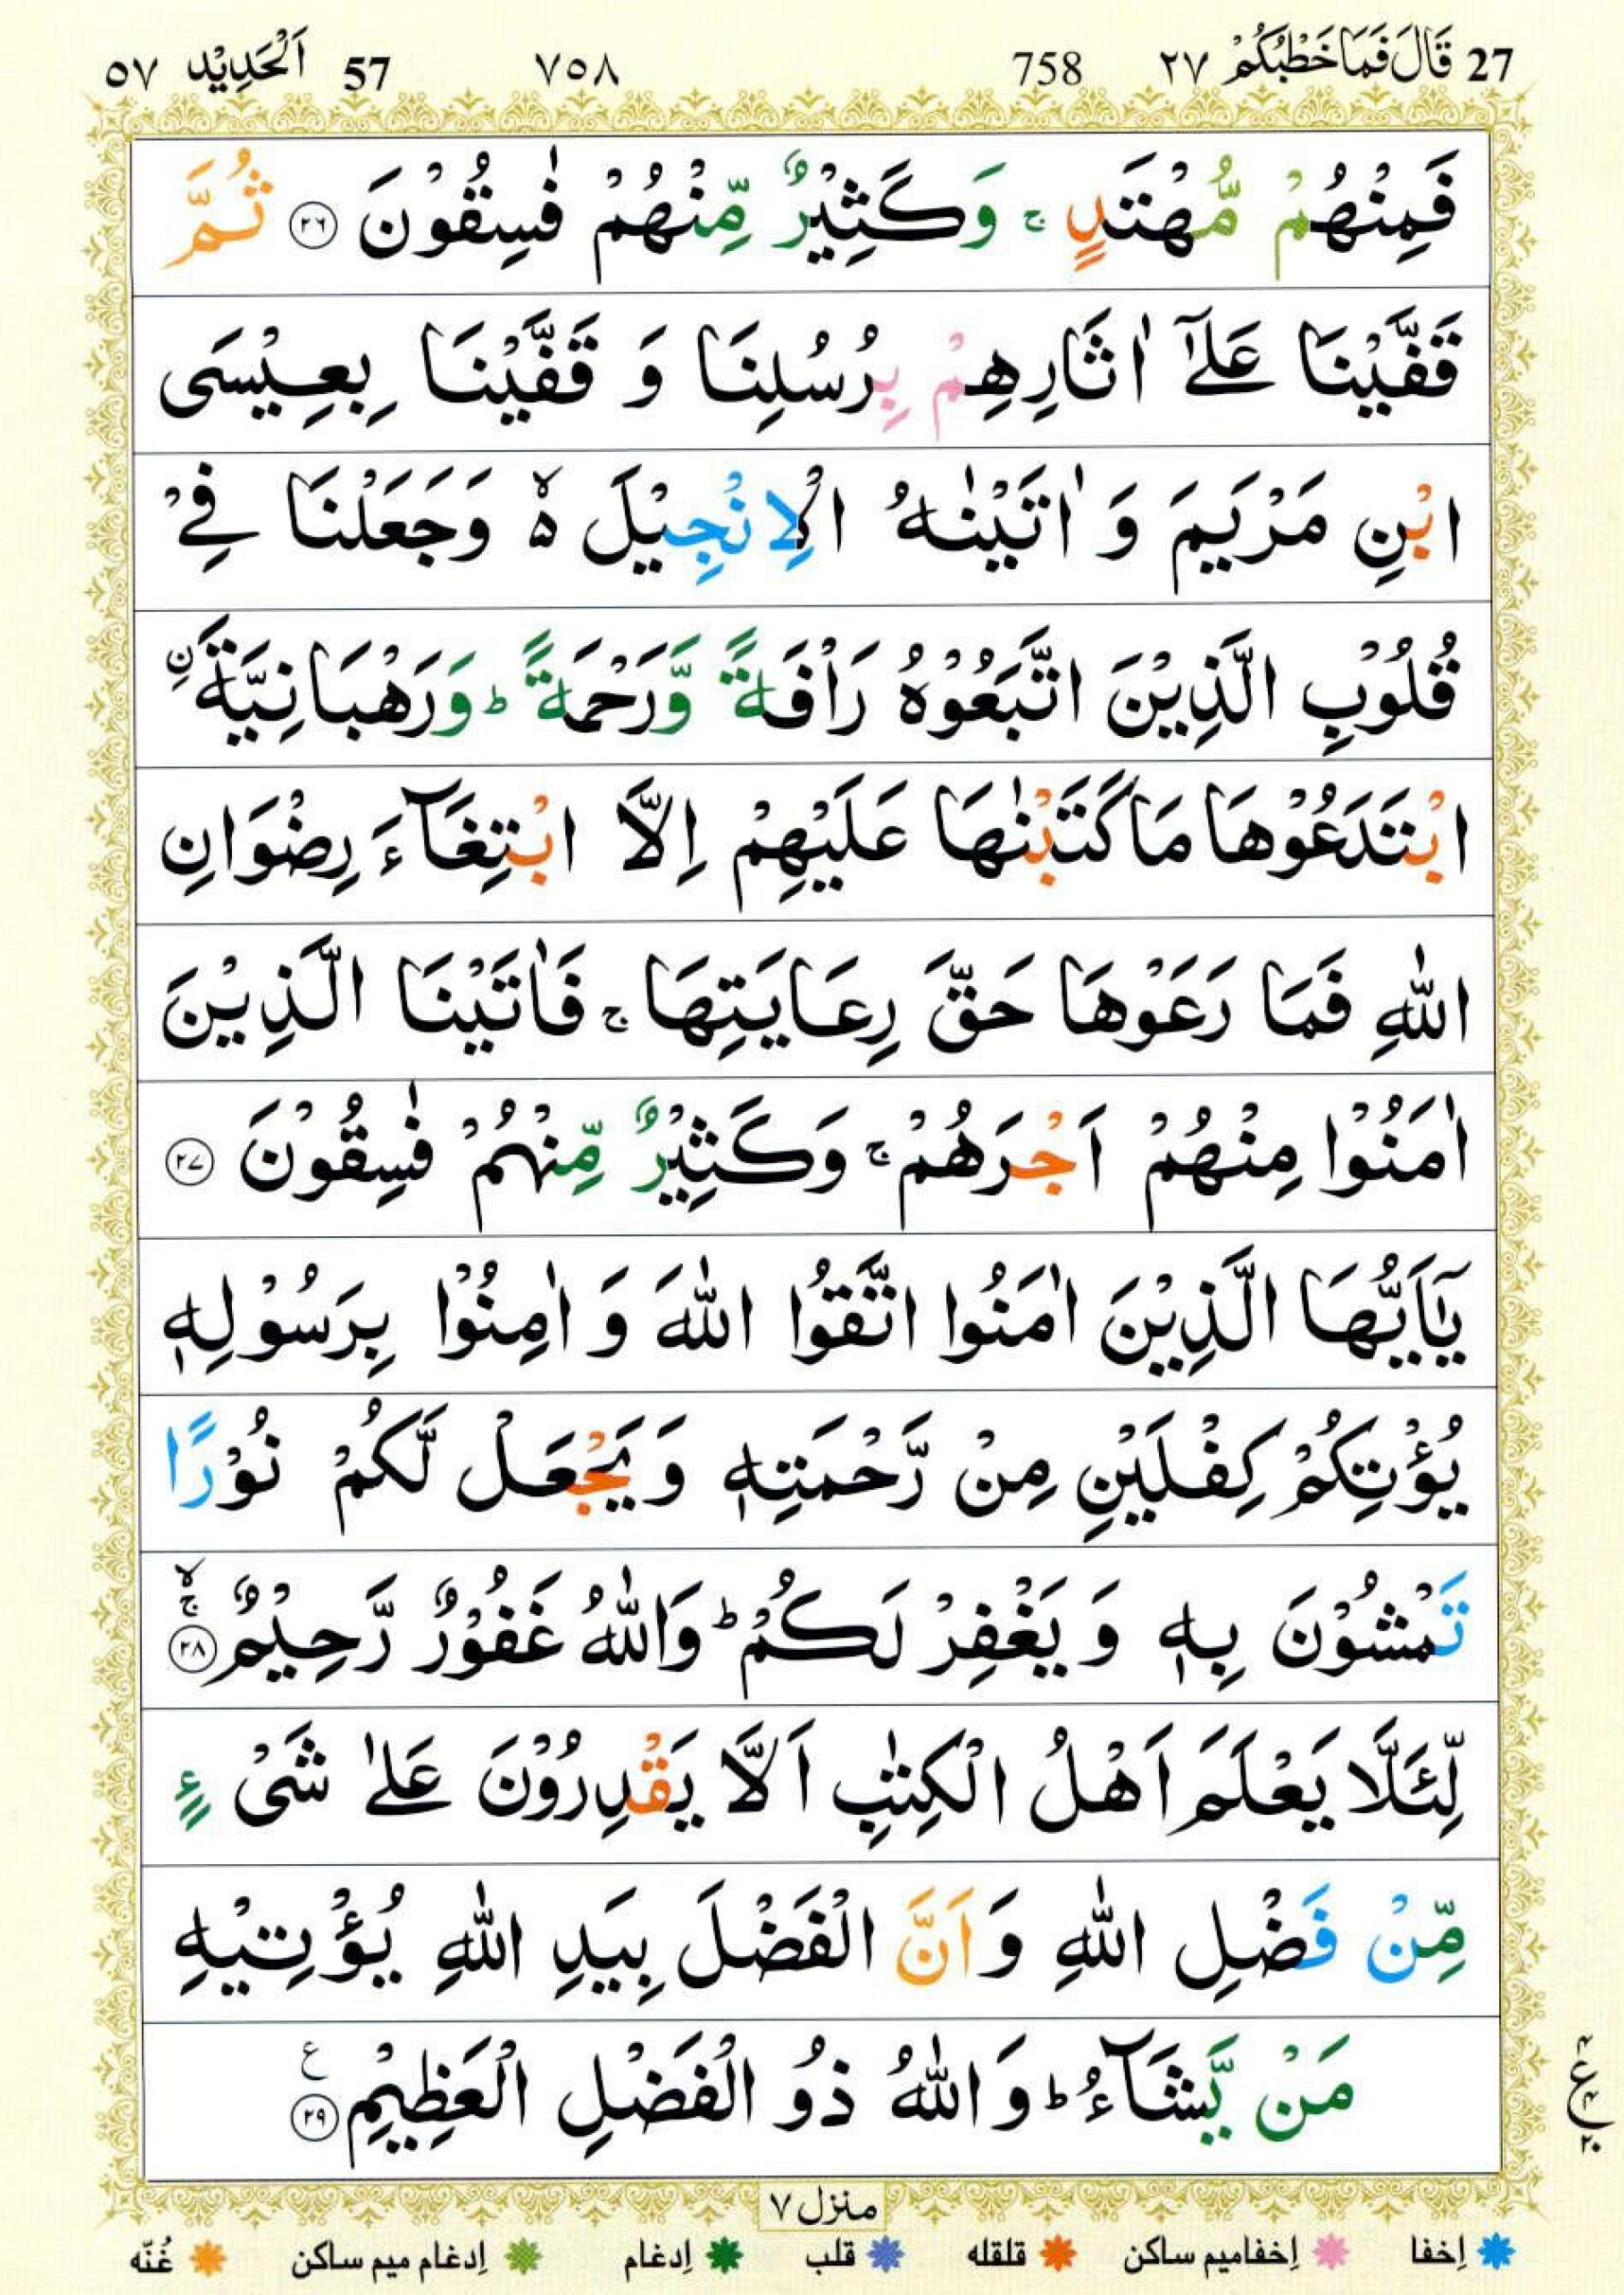 27 قَالَ فَمَا خَطْبُكُمْ ٢٧ 758 ٧٥٨ 57 اَلْحَدِيْد ٥٧
فَمِنْهُمْ مُّهْتَدٍ ۚ وَكَثِيْرٌ مِّنْهُمْ فٰسِقُوْنَ ﴿٢٦﴾ ثُمَّ
قَفَّيْنَا عَلٰٓى اٰثَارِهِمْ بِرُسُلِنَا وَ قَفَّيْنَا بِعِيْسَى
ابْنِ مَرْيَمَ وَ اٰتَيْنٰهُ الْاِنْجِيْلَ ۙ٥ وَجَعَلْنَا فِيْ
قُلُوْبِ الَّذِيْنَ اتَّبَعُوْهُ رَاْفَةً وَّرَحْمَةً ؕ وَرَهْبَانِيَّةَ نِ۟
ابْتَدَعُوْهَا مَا كَتَبْنٰهَا عَلَيْهِمْ اِلَّا ابْتِغَآءَ رِضْوَانِ
اللّٰهِ فَمَا رَعَوْهَا حَقَّ رِعَايَتِهَا ۚ فَاٰتَيْنَا الَّذِيْنَ
اٰمَنُوْا مِنْهُمْ اَجْرَهُمْ ۚ وَكَثِيْرٌ مِّنْهُمْ فٰسِقُوْنَ ﴿٢٧﴾
يٰۤاَيُّهَا الَّذِيْنَ اٰمَنُوا اتَّقُوا اللّٰهَ وَ اٰمِنُوْا بِرَسُوْلِهٖ
يُؤْتِكُمْ كِفْلَيْنِ مِنْ رَّحْمَتِهٖ وَ يَجْعَلْ لَّكُمْ نُوْرًا
تَمْشُوْنَ بِهٖ وَ يَغْفِرْ لَكُمْ ؕ وَاللّٰهُ غَفُوْرٌ رَّحِيْمٌ ﴿٢٨﴾ ۚۙ
لِّئَلَّا يَعْلَمَ اَهْلُ الْكِتٰبِ اَلَّا يَقْدِرُوْنَ عَلٰى شَيْءٍ
مِّنْ فَضْلِ اللّٰهِ وَ اَنَّ الْفَضْلَ بِيَدِ اللّٰهِ يُؤْتِيْهِ
مَنْ يَّشَآءُ ؕ وَ اللّٰهُ ذُو الْفَضْلِ الْعَظِيْمِ ﴿٢٩﴾ ع
ع ٤ ٤ ٢٠
منزل ٧
اِخفا اِخفامیم ساکن قلقله قلب اِدغام اِدغام میم ساکن غُنّه